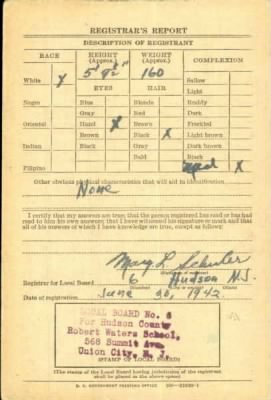 REGISTRAR'S REPORT
DESCRIPTION OF REGISTRANT
RACE HEIGHT (Approx.) WEIGHT (Approx.) COMPLEXION
5' 9½" 160
White X Sallow
EYES HAIR Light
Negro Blue Blonde Ruddy
Gray Red Dark
Oriental Hazel X Brown Freckled
Brown Black X Light brown
Indian Black Gray Dark brown
Bald Black
Filipino X
Other obvious physical characteristics that will aid in identification
None
I certify that my answers are true; that the person registered has read or has had
read to him his own answers; that I have witnessed his signature or mark and that
all of his answers of which I have knowledge are true, except as follows:
Mary L. Schuler
Registrar for Local Board 6 Hudson N.J.
Date of registration June 30, 1942
LOCAL BOARD No. 6
For Hudson County
Robert Waters School,
568 Summit Ave.
Union City, N. J.
(STAMP OF LOCAL BOARD)
(The stamp of the Local Board having jurisdiction of the registrant
shall be placed in the above space)
U. S. GOVERNMENT PRINTING OFFICE